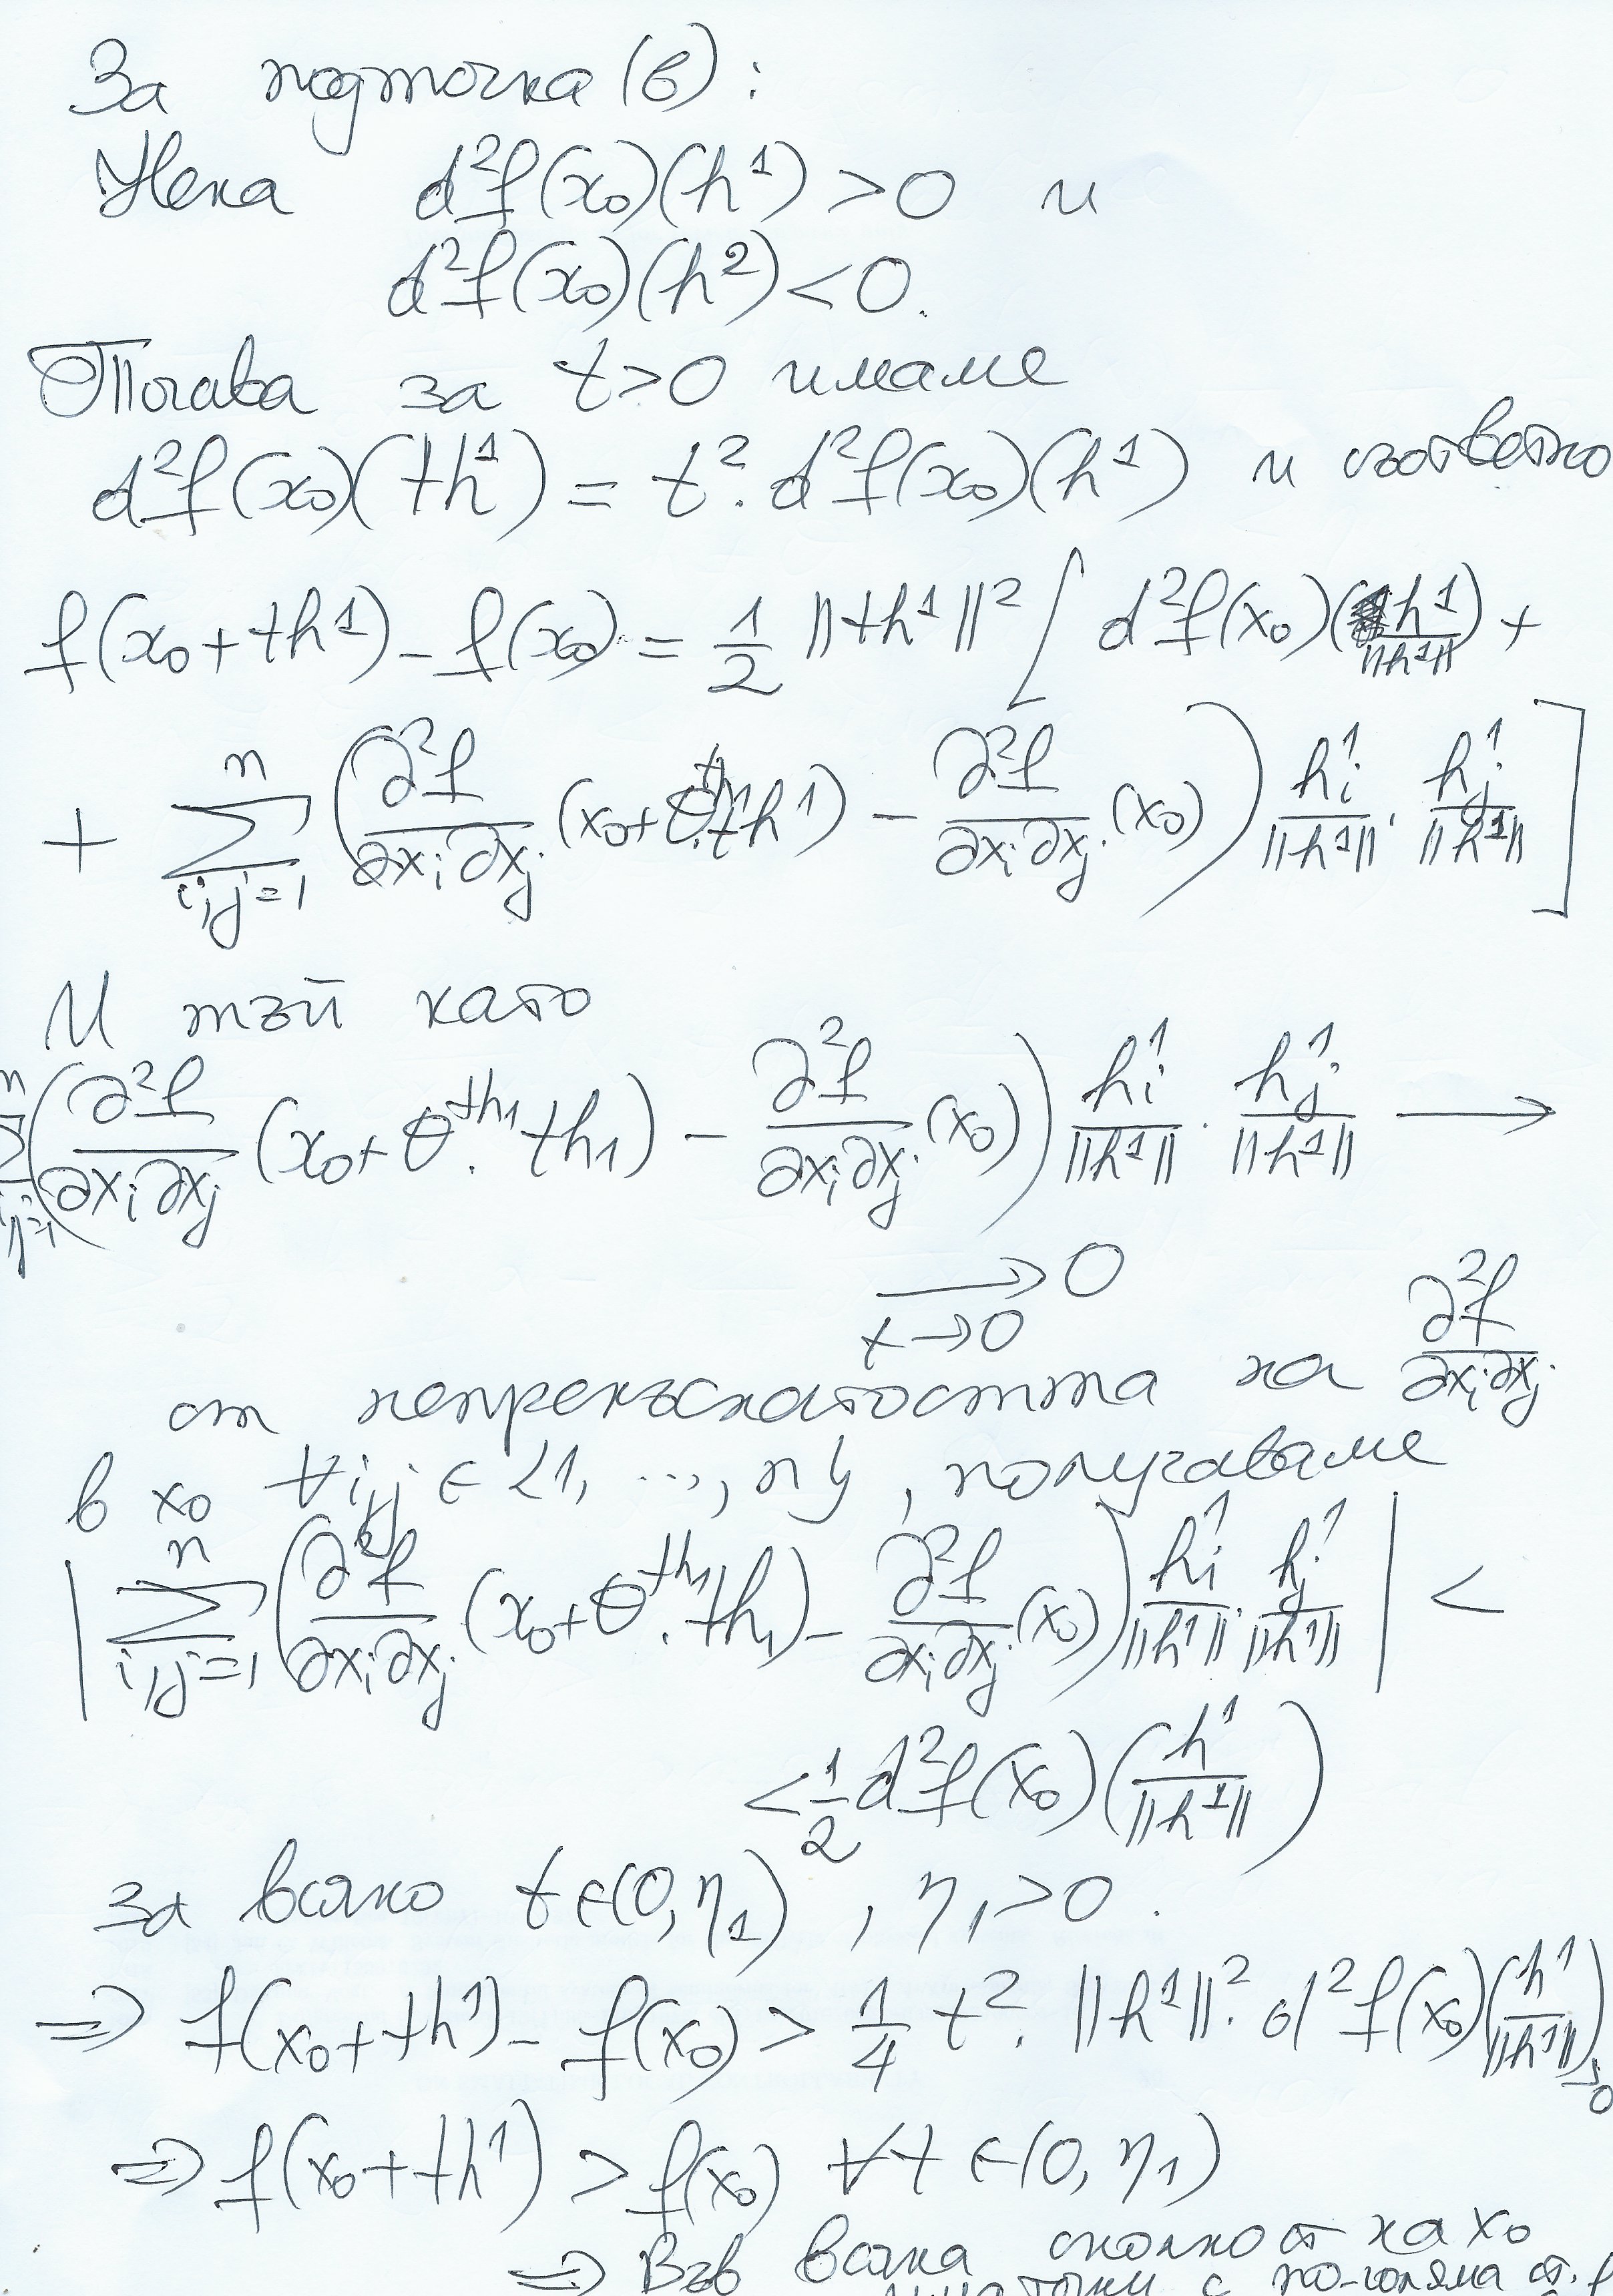 За подточка (в):
Нека d²f(x₀)(h¹) > 0 и
d²f(x₀)(h²) < 0.
Тогава за t > 0 имаме
d²f(x₀)(th¹) = t². d²f(x₀)(h¹) и съответно
f(x₀ + th¹) - f(x₀) = 1/2 ||th¹||² [ d²f(x₀)(h¹/||h¹||) +
+ ∑_{i,j=1}^n (∂²f/∂xᵢ∂xⱼ (x₀ + θ^{th¹}.th¹) - ∂²f/∂xᵢ∂xⱼ (x₀)) hᵢ¹/||h¹|| . hⱼ¹/||h¹|| ]
И тъй като
∑_{i,j=1}^n (∂²f/∂xᵢ∂xⱼ (x₀ + θ^{th₁}.th₁) - ∂²f/∂xᵢ∂xⱼ (x₀)) hᵢ¹/||h¹|| . hⱼ¹/||h¹|| →
→_{t→0} 0
от непрекъснатостта на ∂²f/∂xᵢ∂xⱼ
в x₀ ∀i,j ∈ {1, ..., n}, получаваме
| ∑_{i,j=1}^n (∂²f/∂xᵢ∂xⱼ (x₀ + θ^{th₁}.th₁) - ∂²f/∂xᵢ∂xⱼ (x₀)) hᵢ¹/||h¹|| . hⱼ¹/||h¹|| | <
< 1/2 d²f(x₀)(h¹/||h¹||)
за всяко t ∈ (0, η₁), η₁ > 0.
⇒ f(x₀ + th¹) - f(x₀) > 1/4 t². ||h¹||². d²f(x₀)(h¹/||h¹||) > 0
⇒ f(x₀ + th¹) > f(x₀) ∀t ∈ (0, η₁)
⇒ Във всяка околност на x₀
точки с по-голяма ст.